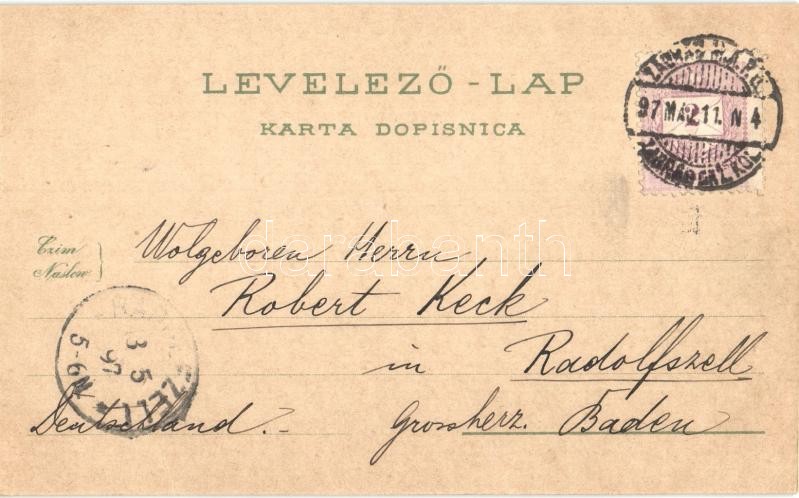 LEVELEZŐ - LAP
KARTA DOPISNICA
97 MAJ. 11. N 4
2
Czim
Naslow
Wolgeboren Herrn
Robert Keck
in Radolfszell
Deutschland. Grossherz. Baden
13 5
97
5-6N
darabanth